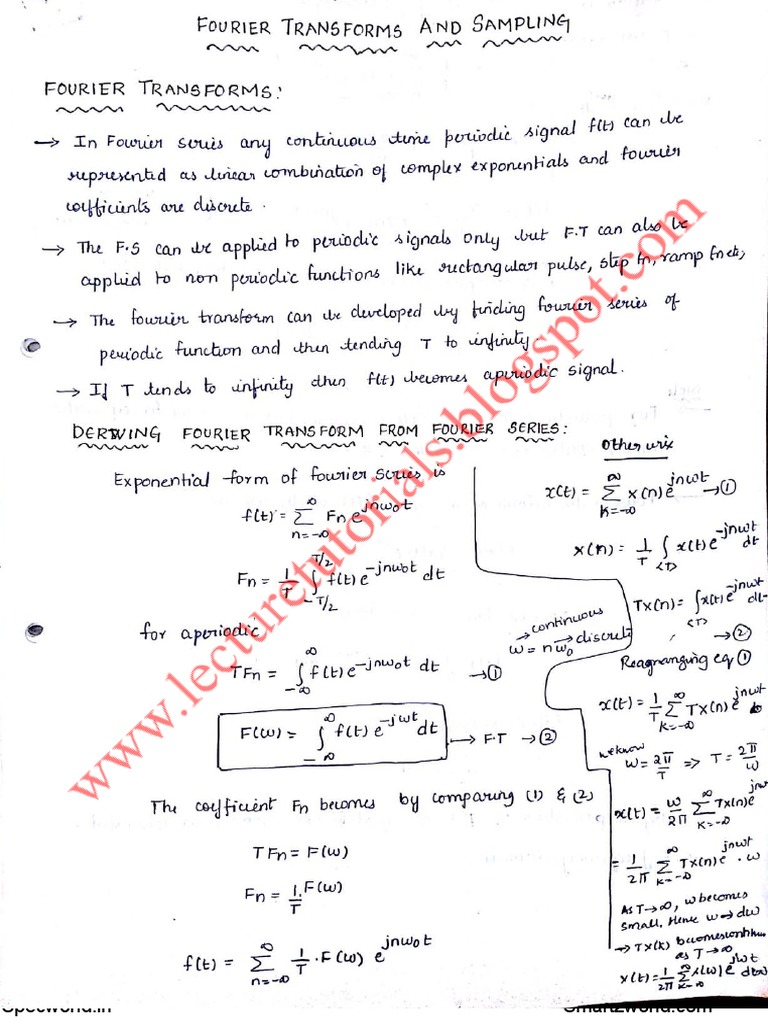 FOURIER TRANSFORMS AND SAMPLING
FOURIER TRANSFORMS:
→ In Fourier series any continuous time periodic signal f(t) can be
represented as linear combination of complex exponentials and fourier
coefficients are discrete.
→ The F.S can be applied to periodic signals only but F.T can also be
applied to non periodic functions like rectangular pulse, step fn, ramp fn etc,
→ The fourier transform can be developed by finding fourier series of
periodic function and then tending T to infinity.
→ If T tends to infinity then f(t) becomes aperiodic signal.
DERIVING FOURIER TRANSFORM FROM FOURIER SERIES:
Exponential form of fourier series is
f(t) = ∞ Σ n=-∞ Fn e^jnω0t
Fn = 1/T ∫ -T/2 T/2 f(t) e^-jnω0t dt
for aperiodic
TFn = ∫ -∞ ∞ f(t) e^-jnω0t dt → ①
F(ω) = ∫ -∞ ∞ f(t) e^-jωt dt → F.T → ②
The coefficient Fn becomes by comparing (1) & (2)
TFn = F(ω)
Fn = 1/T . F(ω)
f(t) = ∞ Σ n=-∞ 1/T . F(ω) e^jnω0t
→ continuous
ω = nω0 → discrete
Other wix
x(t) = ∞ Σ K=-∞ x(n) e^jnωt → ①
x(n) = 1/T ∫ <T> x(t) e^-jnωt dt
Tx(n) = ∫ <T> x(t) e^-jnωt dt
→ ②
Reagnanging eq ①
x(t) = 1/T ∞ Σ K=-∞ Tx(n) e^jnωt
we know
ω = 2π/T => T = 2π/ω
x(t) = ω/2π ∞ Σ K=-∞ Tx(n) e^jnω
= 1/2π ∞ Σ K=-∞ Tx(n) e^jnωt . ω
As T→∞, ω becomes
small. Hence ω → dω
→ Tx(k) becomes continuous
as T→∞
x(t) = 1/2π ∞ Σ K=-∞ x(ω) e^jωt dω
www.lecturetutorials.blogspot.com
Specworld.in
Smartzworld.com